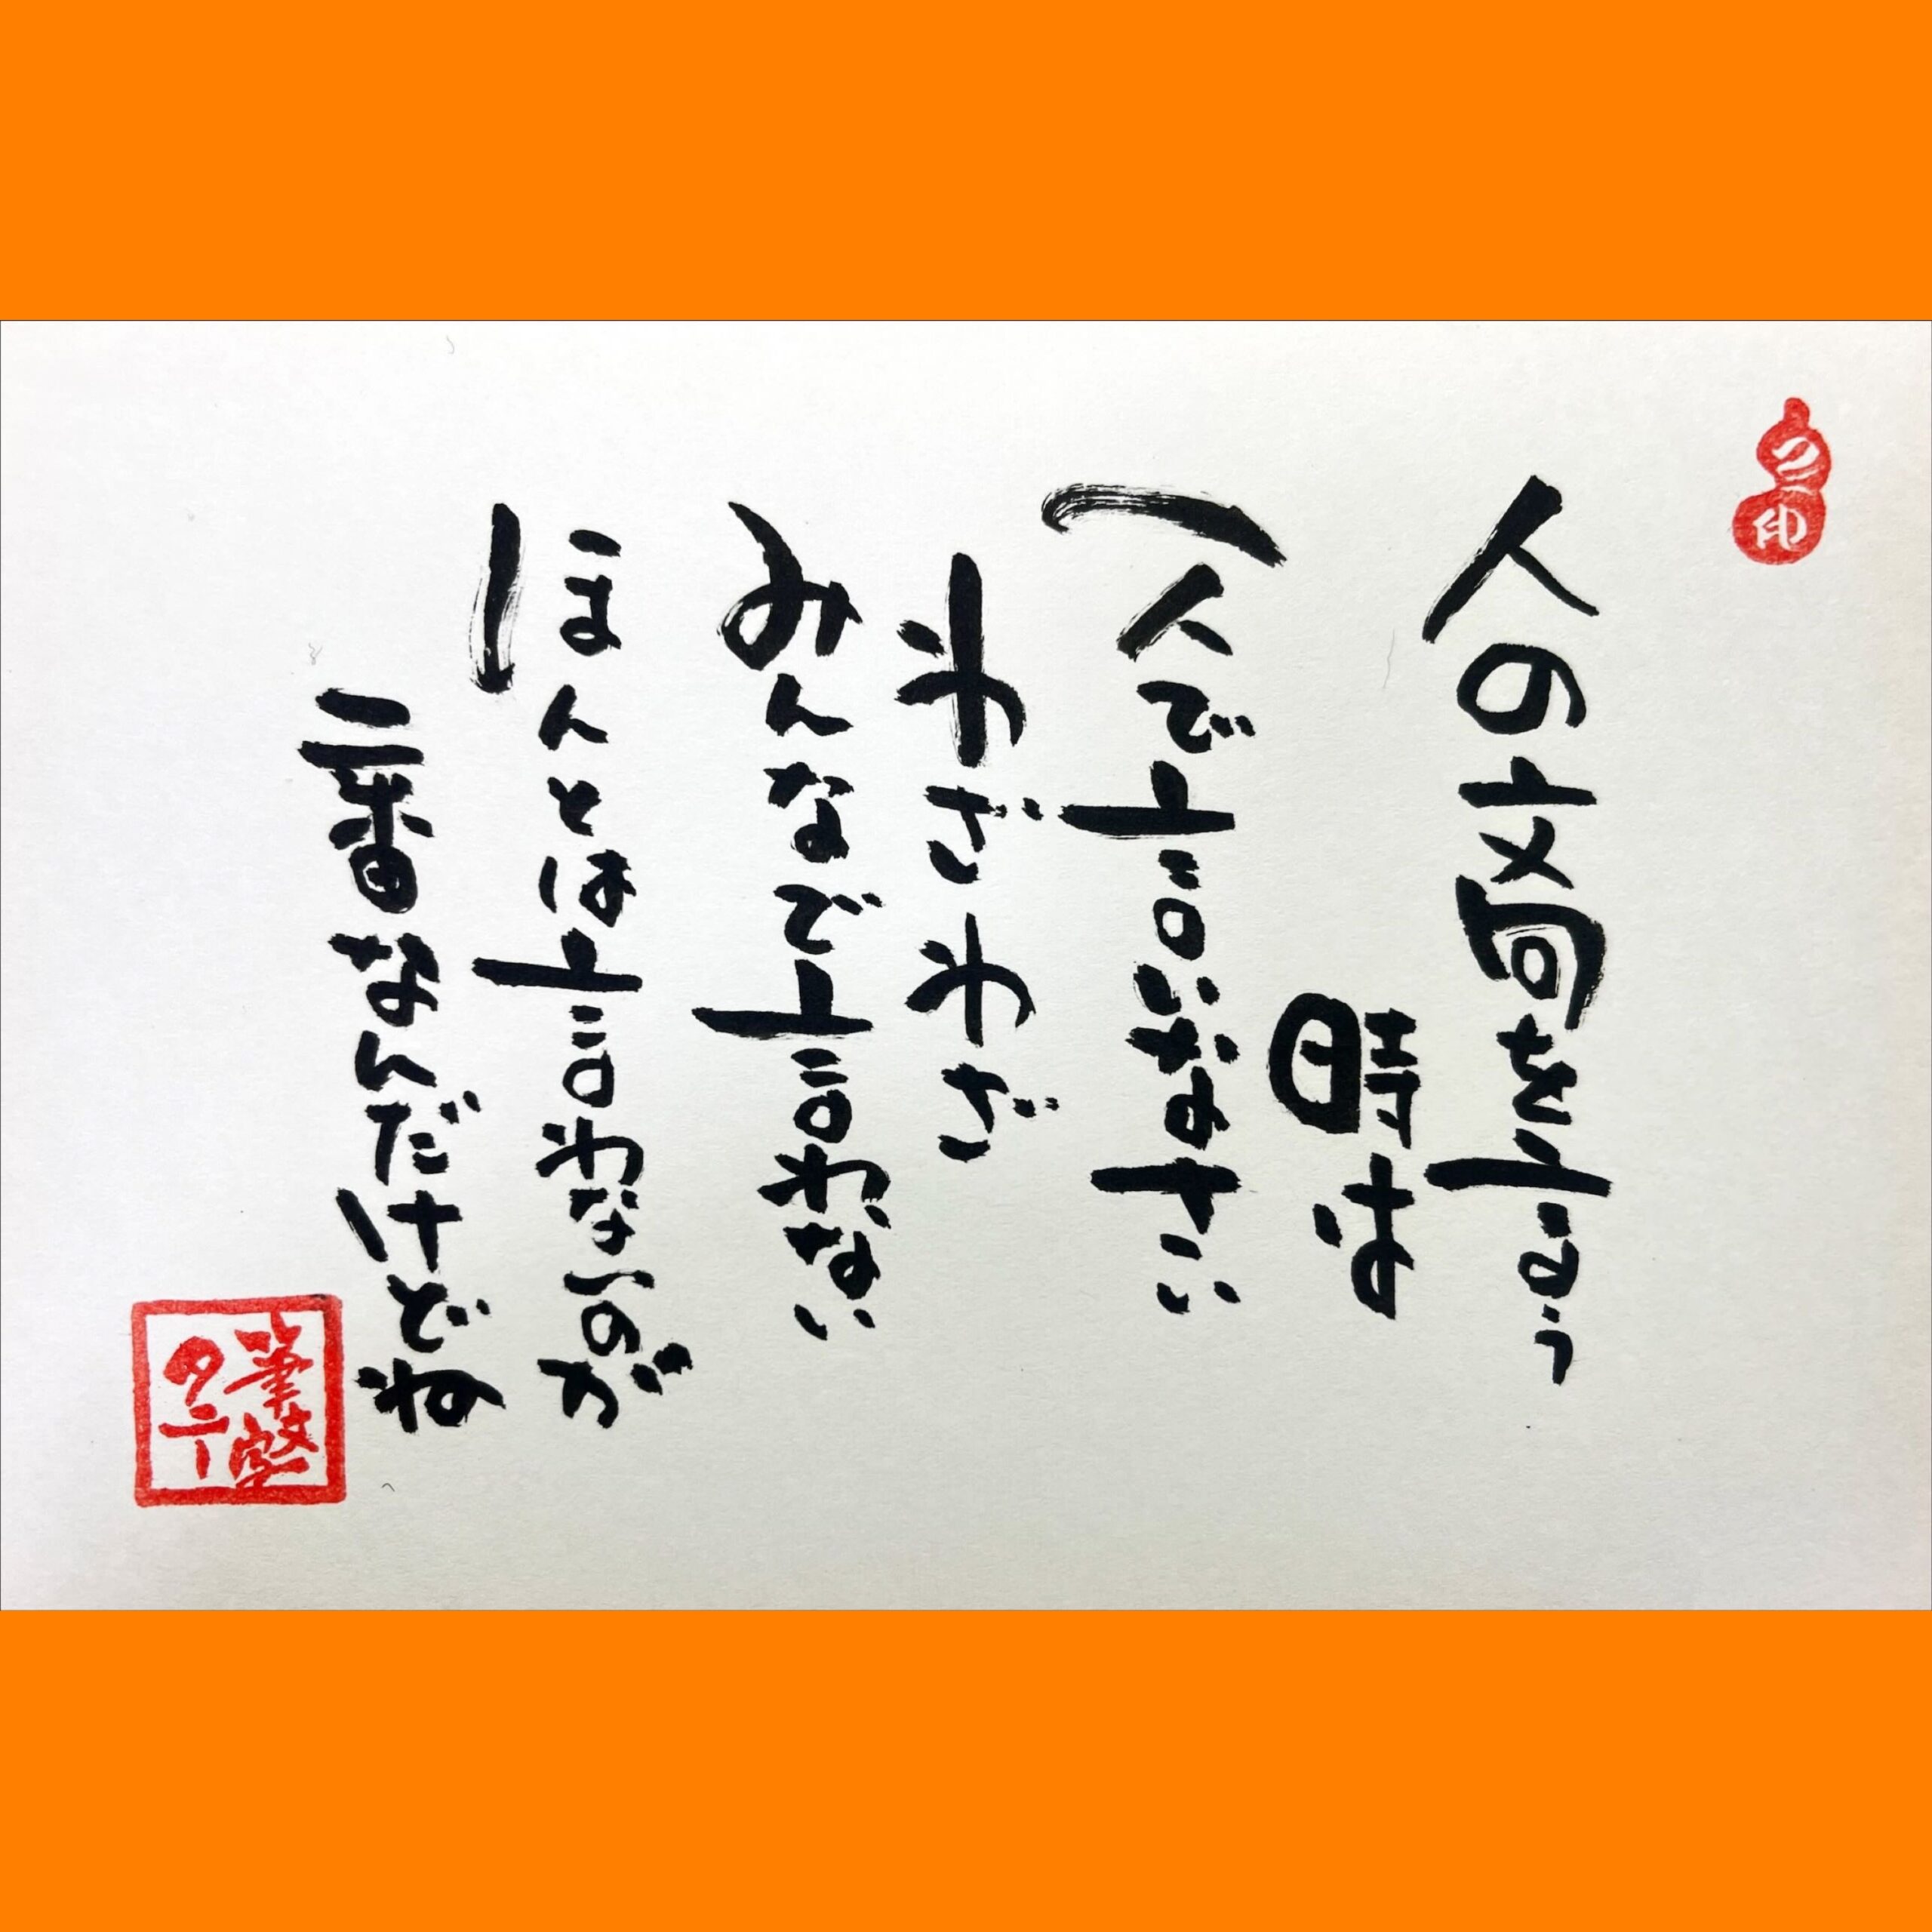 人の文句を言う
時は
一人で言いなさい
わざわざ
みんなで言わない
ほんとは言わないのが
一番なんだけどね
筆文字
タニー